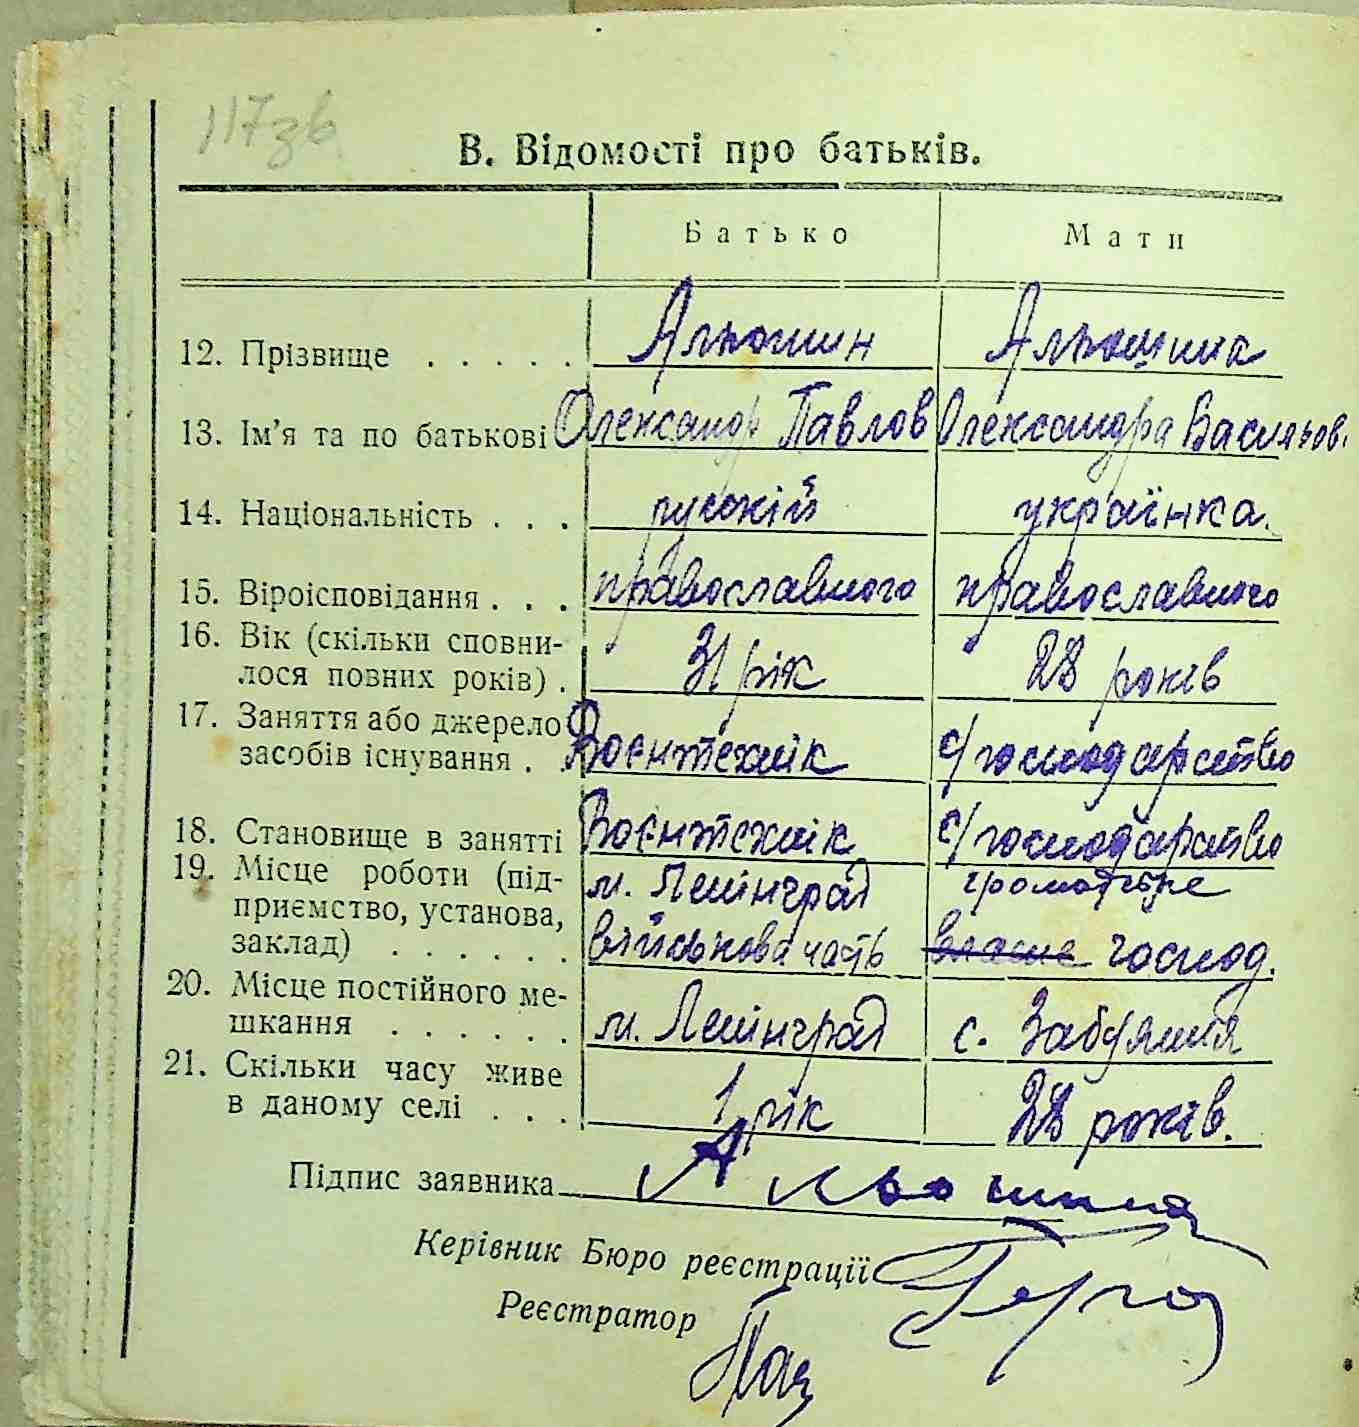 117зв
В. Відомості про батьків.
Батько Мати
12. Прізвище . . . . . Альошин Альошина
13. Ім'я та по батькові Олександр Павлов Олександра Васильов.
14. Національність . . . руський українка.
15. Віроісповідання . . . православного православного
16. Вік (скільки сповни-
лося повних років) . 31 рік 28 років
17. Заняття або джерело
засобів існування . . Воєнтехнік с/господарство
18. Становище в занятті Воєнтехнік с/господарство
19. Місце роботи (під- м. Ленінград громадське
приємство, установа,
заклад) . . . . . . військова часть власне господ.
20. Місце постійного ме-
шкання . . . . . . м. Ленінград с. Забуяння
21. Скільки часу живе
в даному селі . . . 1 рік 28 років.
Підпис заявника Альошина
Керівник Бюро реєстрації
Реєстратор